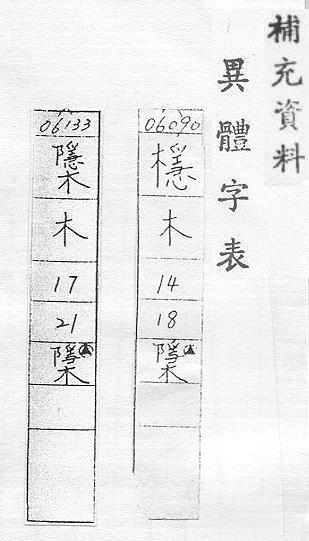 補充資料
異體字表
06090
檼
木
14
18
檃
06133
櫽
木
17
21
檃